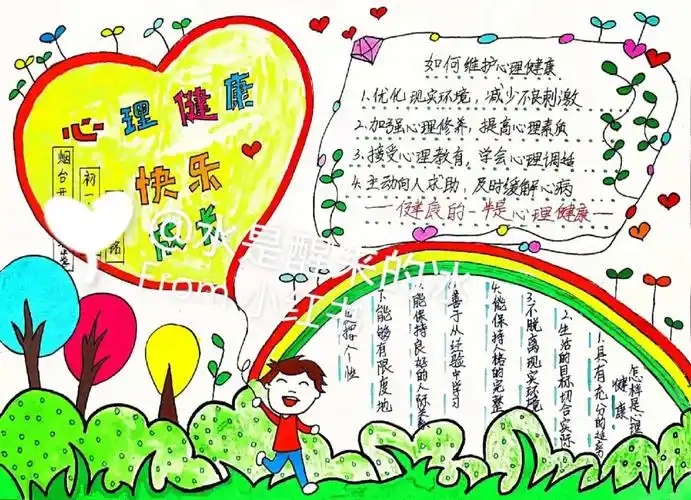 心理健康
快乐
成长
初一
如何维护心理健康
1.优化现实环境，减少不良刺激
2.加强心理修养，提高心理素质
3.接受心理教育，学会心理调适
4.主动向人求助，及时缓解心病
——健康的一半是心理健康——
怎样是心理
健康
1.具有充分的适
2.生活的目标切合实际
3.不脱离现实环境
4.能保持人格的完整
善于从经验中学习
能保持良好的人际关系
能够有限度地
发挥个性
@水是醒来的冰
From 小红书